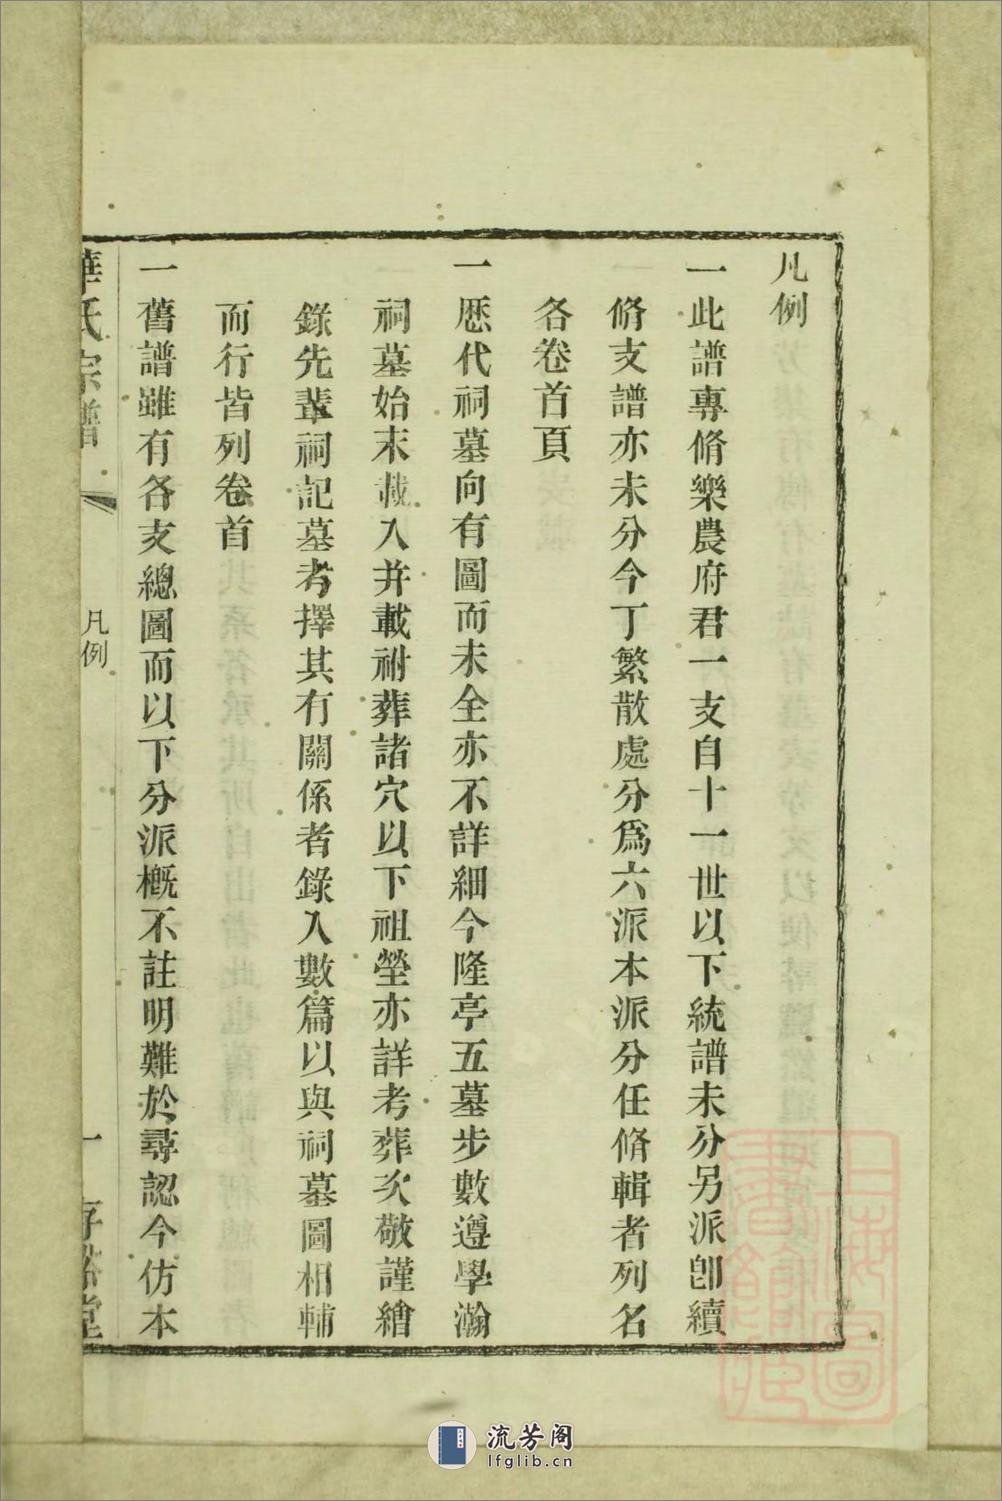 凡例
一此譜專脩樂農府君一支自十一世以下統譜未分另派卽續
脩支譜亦未分今丁繁散處分爲六派本派分任脩輯者列名
各卷首頁
一歷代祠墓向有圖而未全亦不詳細今隆亭五墓步數遵學瀚
祠墓始末載入并載祔葬諸穴以下祖塋亦詳考葬次敬謹繪
錄先輩祠記墓考擇其有關係者錄入數篇以與祠墓圖相輔
而行皆列卷首
一舊譜雖有各支總圖而以下分派槪不註明難於尋認今仿本
華氏宗譜 凡例 一 存裕堂
上海圖書館藏
流芳阁
lfglib.cn